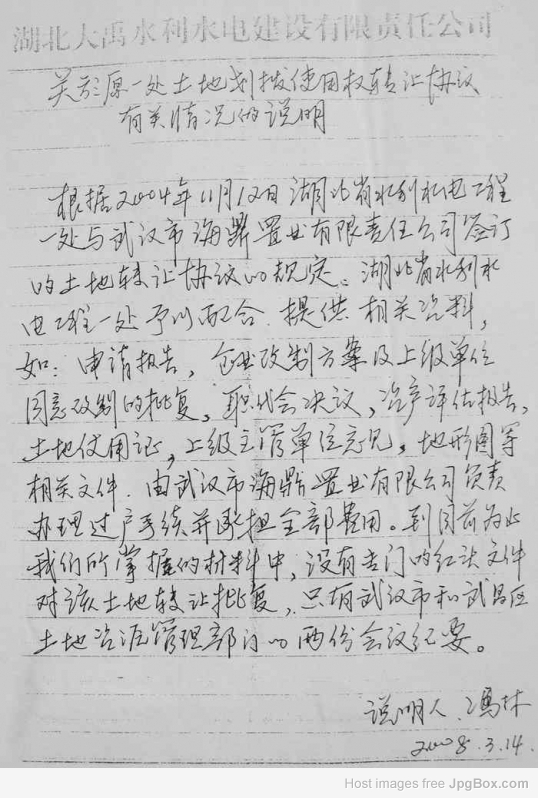 湖北大禹水利水电建设有限责任公司
关于原一处土地划拨使用权转让协议
有关情况的说明
根据2004年11月12日湖北省水利水电工程
一处与武汉市海鼎置业有限责任公司签订
的土地转让协议的规定。湖北省水利水
电工程一处予以配合.提供相关资料,
如:申请报告,企业改制方案及上级单位
同意改制的批复,职代会决议,资产评估报告,
土地使用证,上级主管单位意见,地形图等
相关文件.由武汉市海鼎置业有限公司负责
办理过户手续并承担全部费用。到目前为止
我们所掌握的材料中,没有专门的红头文件
对该土地转让批复,只有武汉市和武昌区
土地资源管理部门的两份会议纪要。
说明人:冯林
2008.3.14.
Host images free JpgBox.com